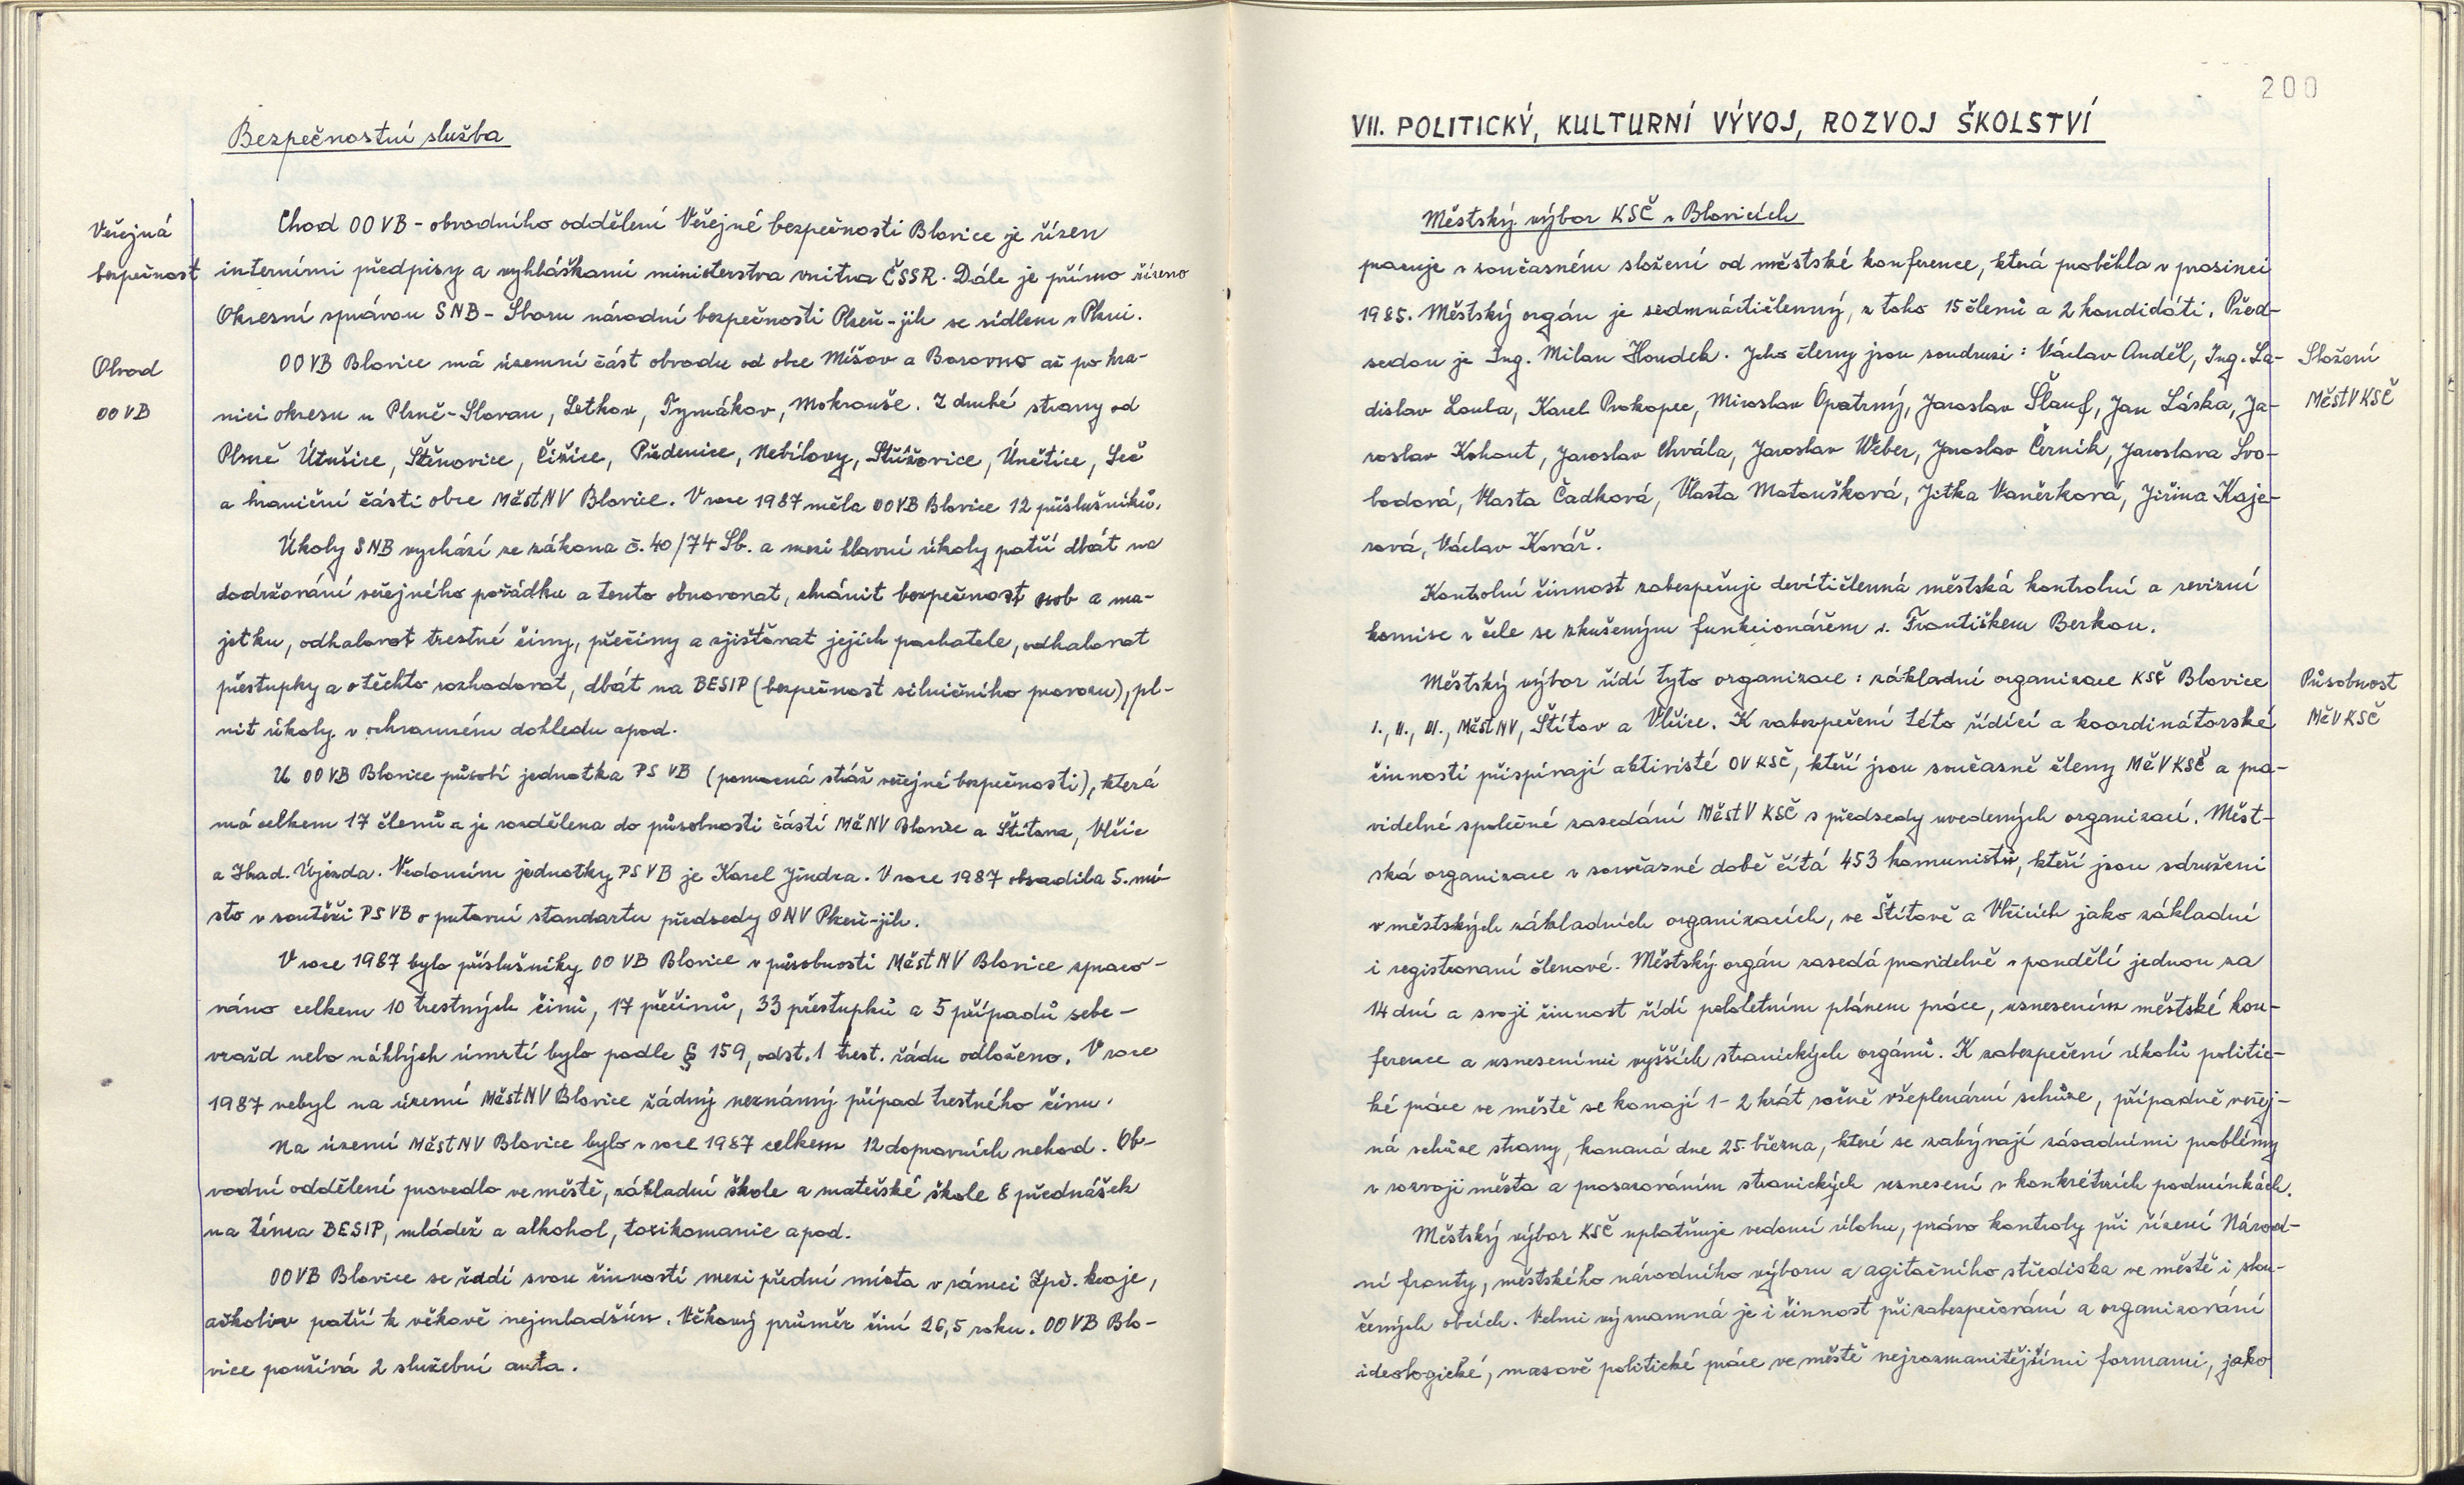 Bezpečnostní služba
Veřejná
bezpečnost
Chod OOVB - obvodního oddělení Veřejné bezpečnosti Blovice je řízen
interními předpisy a vyhláškami ministerstva vnitra ČSSR. Dále je přímo řízeno
Okresní správou SNB - Sboru národní bezpečnosti Plzeň-jih se sídlem v Plzni.
Obvod
OOVB
OOVB Blovice má územní část obvodu od obce Míšov a Borovno až po hra-
nici okresu u Plzně-Slovan, Letkov, Tymákov, Mokrouše. Z druhé strany od
Plzně Útušice, Štěnovice, Čižice, Předenice, Nebílovy, Střížovice, Únětice, Seč
a hraniční části obce MěstNV Blovice. V roce 1987 měla OOVB Blovice 12 příslušníků.
Úkoly SNB vychází ze zákona č. 40/74 Sb. a mezi hlavní úkoly patří dbát na
dodržování veřejného pořádku a tento obnovovat, chránit bezpečnost osob a ma-
jetku, odhalovat trestné činy, přečiny a zjišťovat jejich pachatele, odhalovat
přestupky a o těchto rozhodovat, dbát na BESIP (bezpečnost silničního provozu), pl-
nit úkoly v ochranném dohledu apod.
U OOVB Blovice působí jednotka PS VB (pomocná stráž veřejné bezpečnosti), která
má celkem 17 členů a je rozdělena do působnosti částí MěNV Blovice a Štítova, Vlčic
a Hrad. Újezda. Vedoucím jednotky PS VB je Karel Jindra. V roce 1987 obsadila 5. mí-
sto v soutěži PS VB o putovní standartu předsedy ONV Plzeň-jih.
V roce 1987 bylo příslušníky OO VB Blovice v působnosti MěstNV Blovice zpraco-
váno celkem 10 trestných činů, 17 přečinů, 33 přestupků a 5 případů sebe-
vražd nebo náhlých úmrtí bylo podle § 159, odst. 1 trest. řádu odloženo. V roce
1987 nebyl na území MěstNV Blovice žádný neznámý případ trestného činu.
Na území MěstNV Blovice bylo v roce 1987 celkem 12 dopravních nehod. Ob-
vodní oddělení provedlo ve městě, základní škole a mateřské škole 8 přednášek
na téma BESIP, mládež a alkohol, toxikomanie apod.
OOVB Blovice se řadí svou činností mezi přední místa v rámci Zpč. kraje,
ačkoliv patří k věkově nejmladším. Věkový průměr činí 26,5 roku. OOVB Blo-
vice používá 2 služební auta.
200
VII. POLITICKÝ, KULTURNÍ VÝVOJ, ROZVOJ ŠKOLSTVÍ
Městský výbor KSČ v Blovicích
pracuje v současném složení od městské konference, která proběhla v prosinci
1985. Městský orgán je sedmnáctičlenný, z toho 15 členů a 2 kandidáti. Před-
sedou je Ing. Milan Houdek. Jeho členy jsou soudruzi: Václav Anděl, Ing. La-
dislav Loula, Karel Prokopec, Miroslav Opatrný, Jaroslav Šlauf, Jan Láska, Ja-
roslav Kohout, Jaroslav Chvála, Jaroslav Weber, Jaroslav Černík, Jaroslava Svo-
bodová, Vlasta Čadková, Vlasta Matoušková, Jitka Vaněrková, Jiřina Kaje-
rová, Václav Kovář.
Složení
MěstV KSČ
Kontrolní činnost zabezpečuje devítičlenná městská kontrolní a revizní
komise v čele se zkušeným funkcionářem s. Františkem Berkou.
Městský výbor řídí tyto organizace: základní organizace KSČ Blovice
I., II., III., MěstNV, Štítov a Vlčice. K zabezpečení této řídící a koordinátorské
činnosti přispívají aktivisté OV KSČ, kteří jsou současně členy MěV KSČ a pra-
videlné společné zasedání MěstV KSČ s předsedy uvedených organizací. Měst-
ská organizace v současné době čítá 453 komunistů, kteří jsou sdruženi
v městských základních organizacích, ve Štítově a Vlčicích jako základní
i registrovaní členové. Městský orgán zasedá pravidelně v pondělí jednou za
14 dní a svoji činnost řídí pololetním plánem práce, usnesením městské kon-
ference a usneseními vyšších stranických orgánů. K zabezpečení úkolů politic-
ké práce ve městě se konají 1-2 krát ročně všeplenární schůze, případně veřej-
ná schůze strany, konaná dne 25. března, které se zabývají zásadními problémy
v rozvoji města a prosazováním stranických usnesení v konkrétních podmínkách.
Působnost
MěV KSČ
Městský výbor KSČ uplatňuje vedoucí úlohu, právo kontroly při řízení Národ-
ní fronty, městského národního výboru a agitačního střediska ve městě i slou-
čených obcích. Velmi významná je i činnost při zabezpečování a organizování
ideologické, masově politické práce ve městě nejrozmanitějšími formami, jako